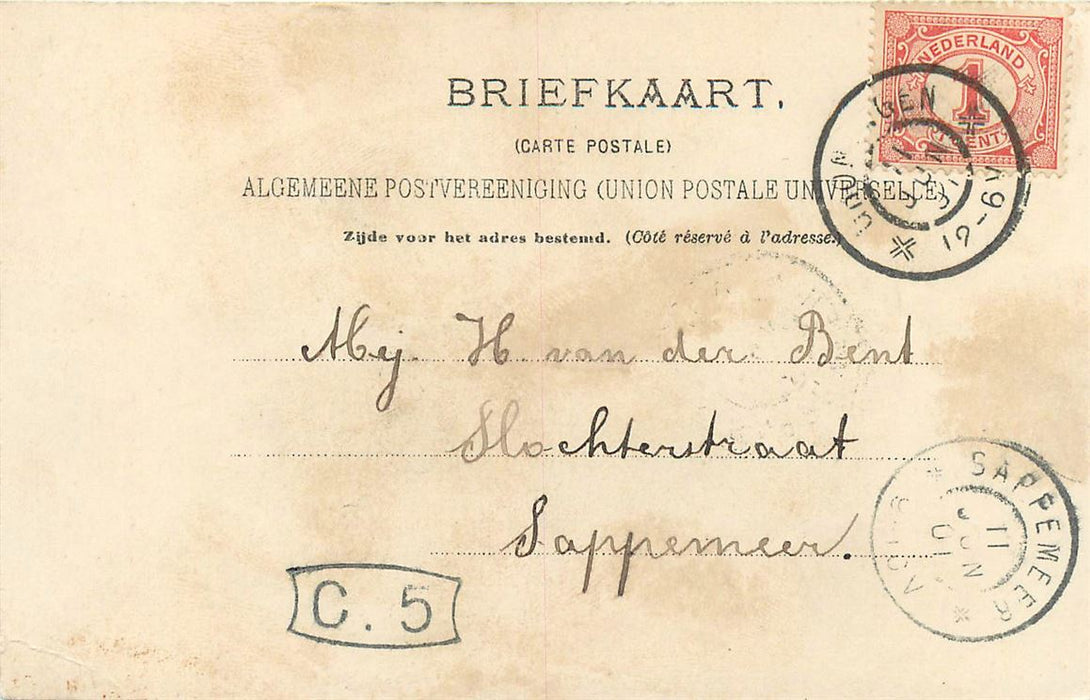 NEDERLAND
1
CENT
BRIEFKAART.
(CARTE POSTALE)
ALGEMEENE POSTVEREENIGING (UNION POSTALE UNIVERSELLE)
Zijde voor het adres bestemd. (Côté réservé à l'adresse.)
Mej. H. van der Bent
Slochterstraat
Sappemeer.
SAPPEMEER
11 JUN
C. 5